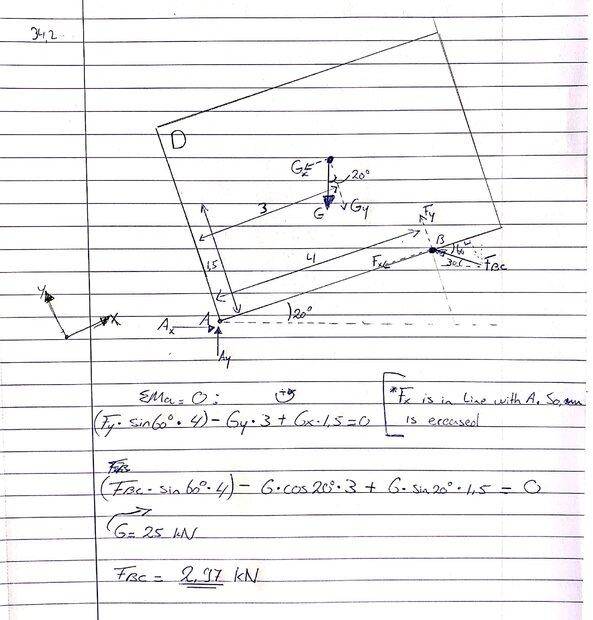 34,2
D
Gx
20°
G
Gy
3
Fy
B
4
60°
30°
FBC
Fx
1,5
Y
X
A
Ax
20°
Ay
ΣMa = 0 :
(Fy · sin60° · 4) - Gy · 3 + Gx · 1,5 = 0
*Fx is in line with A. So,
is ereased
(FBC · sin 60° · 4) - G · cos20° · 3 + G · sin 20° · 1,5 = 0
G = 25 kN
FBC = 2,97 kN